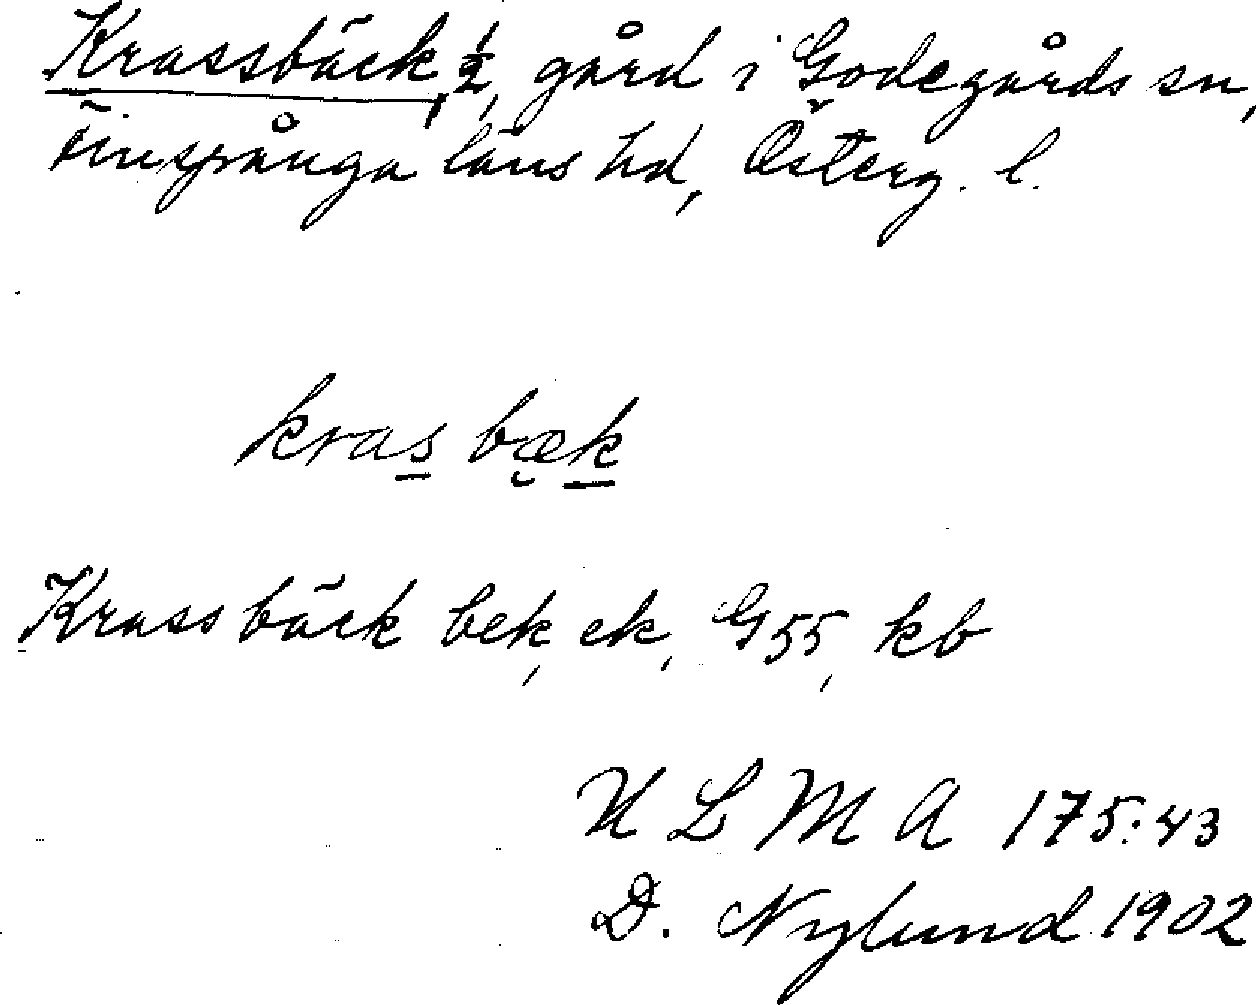 Krassbäck, 1/2, gård i Godegårds sn,
Finspånga läns hd, Österg. l.
kras bæk
Krassbäck bek, ek, G55, kb
U L M A 175:43
D. Nylund 1902